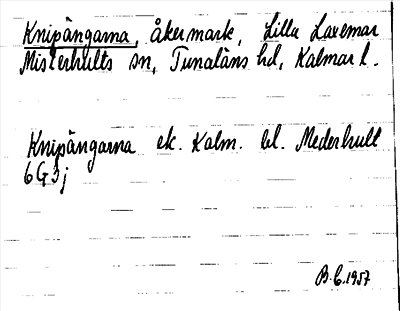 Knipängarna, åkermark, Lilla Laxemar
Misterhults sn, Tunaläns hd, Kalmar l.
Knipängarna ek. Kalm. bl. Mederhult
6G3j
B.C. 1957